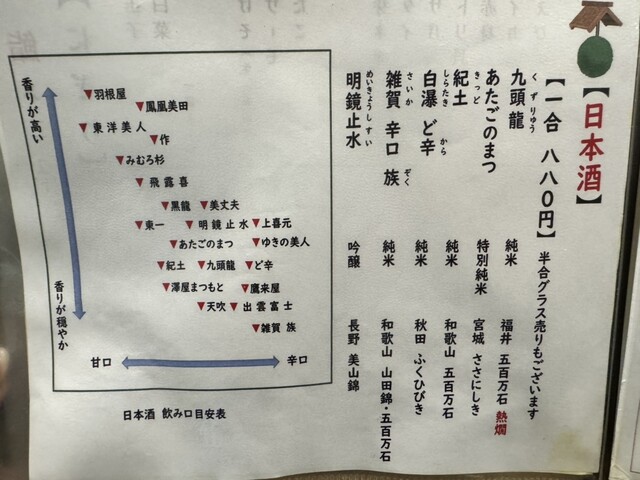 【日本酒】
【一合 八八〇円】 半合グラス売りもございます
九頭龍 くずりゅう 純米 福井 五百万石 熱燗
あたごのまつ 特別純米 宮城 ささにしき
紀土 きっど 純米 和歌山 五百万石
白瀑 ど辛 しらたき から 純米 秋田 ふくひびき
雑賀 辛口 族 さいか ぞく 純米 和歌山 山田錦・五百万石
明鏡止水 めいきょうしすい 吟醸 長野 美山錦
香りが高い
▼羽根屋
▼鳳凰美田
▼東洋美人
▼作
▼みむろ杉
▼飛露喜
▼黒龍 ▼美丈夫
▼東一 ▼明鏡止水 ▼上喜元
▼あたごのまつ ▼ゆきの美人
▼紀土 ▼九頭龍 ▼ど辛
▼澤屋まつもと ▼鷹来屋
▼天吹 ▼出雲富士
▼雑賀 族
香りが穏やか
甘口 辛口
日本酒 飲み口目安表